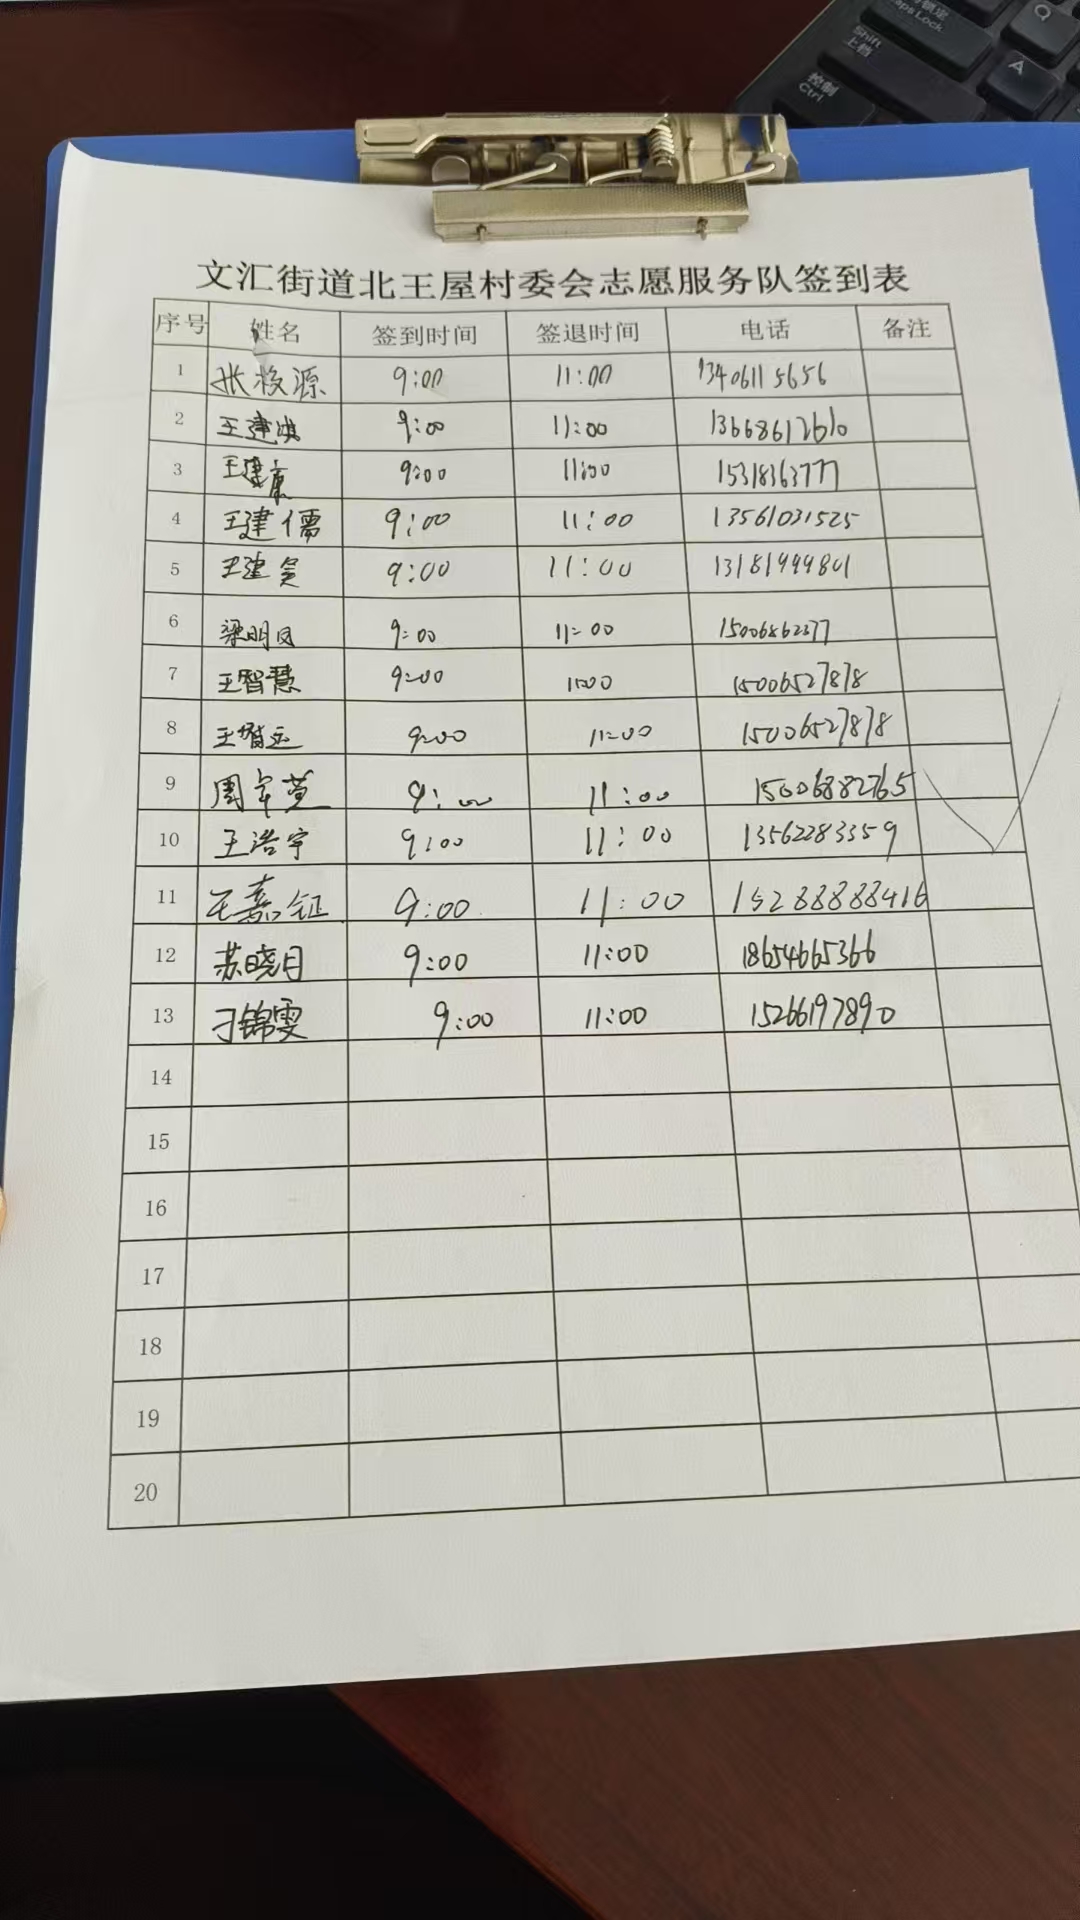 控制
Ctrl
Shift
上档
Caps Lock
Q
A
文汇街道北王屋村委会志愿服务队签到表
序号 姓名 签到时间 签退时间 电话 备注
1 张 源 9:00 11:00 13406115656
2 王建 9:00 11:00 13668612610
3 王建康 9:00 11:00 15318363777
4 王建儒 9:00 11:00 13561031525
5 王建 9:00 11:00 13181999801
6 梁明凤 9:00 11:00 15006862377
7 王智慧 9:00 11:00 15006527878
8 王智远 9:00 11:00 15006527878
9 周 萱 9:00 11:00 15006882765
10 王浩宇 9:00 11:00 13562283359
11 王嘉钲 9:00 11:00 15288888416
12 苏晓月 9:00 11:00 18654665366
13 刁锦雯 9:00 11:00 15266197890
14
15
16
17
18
19
20